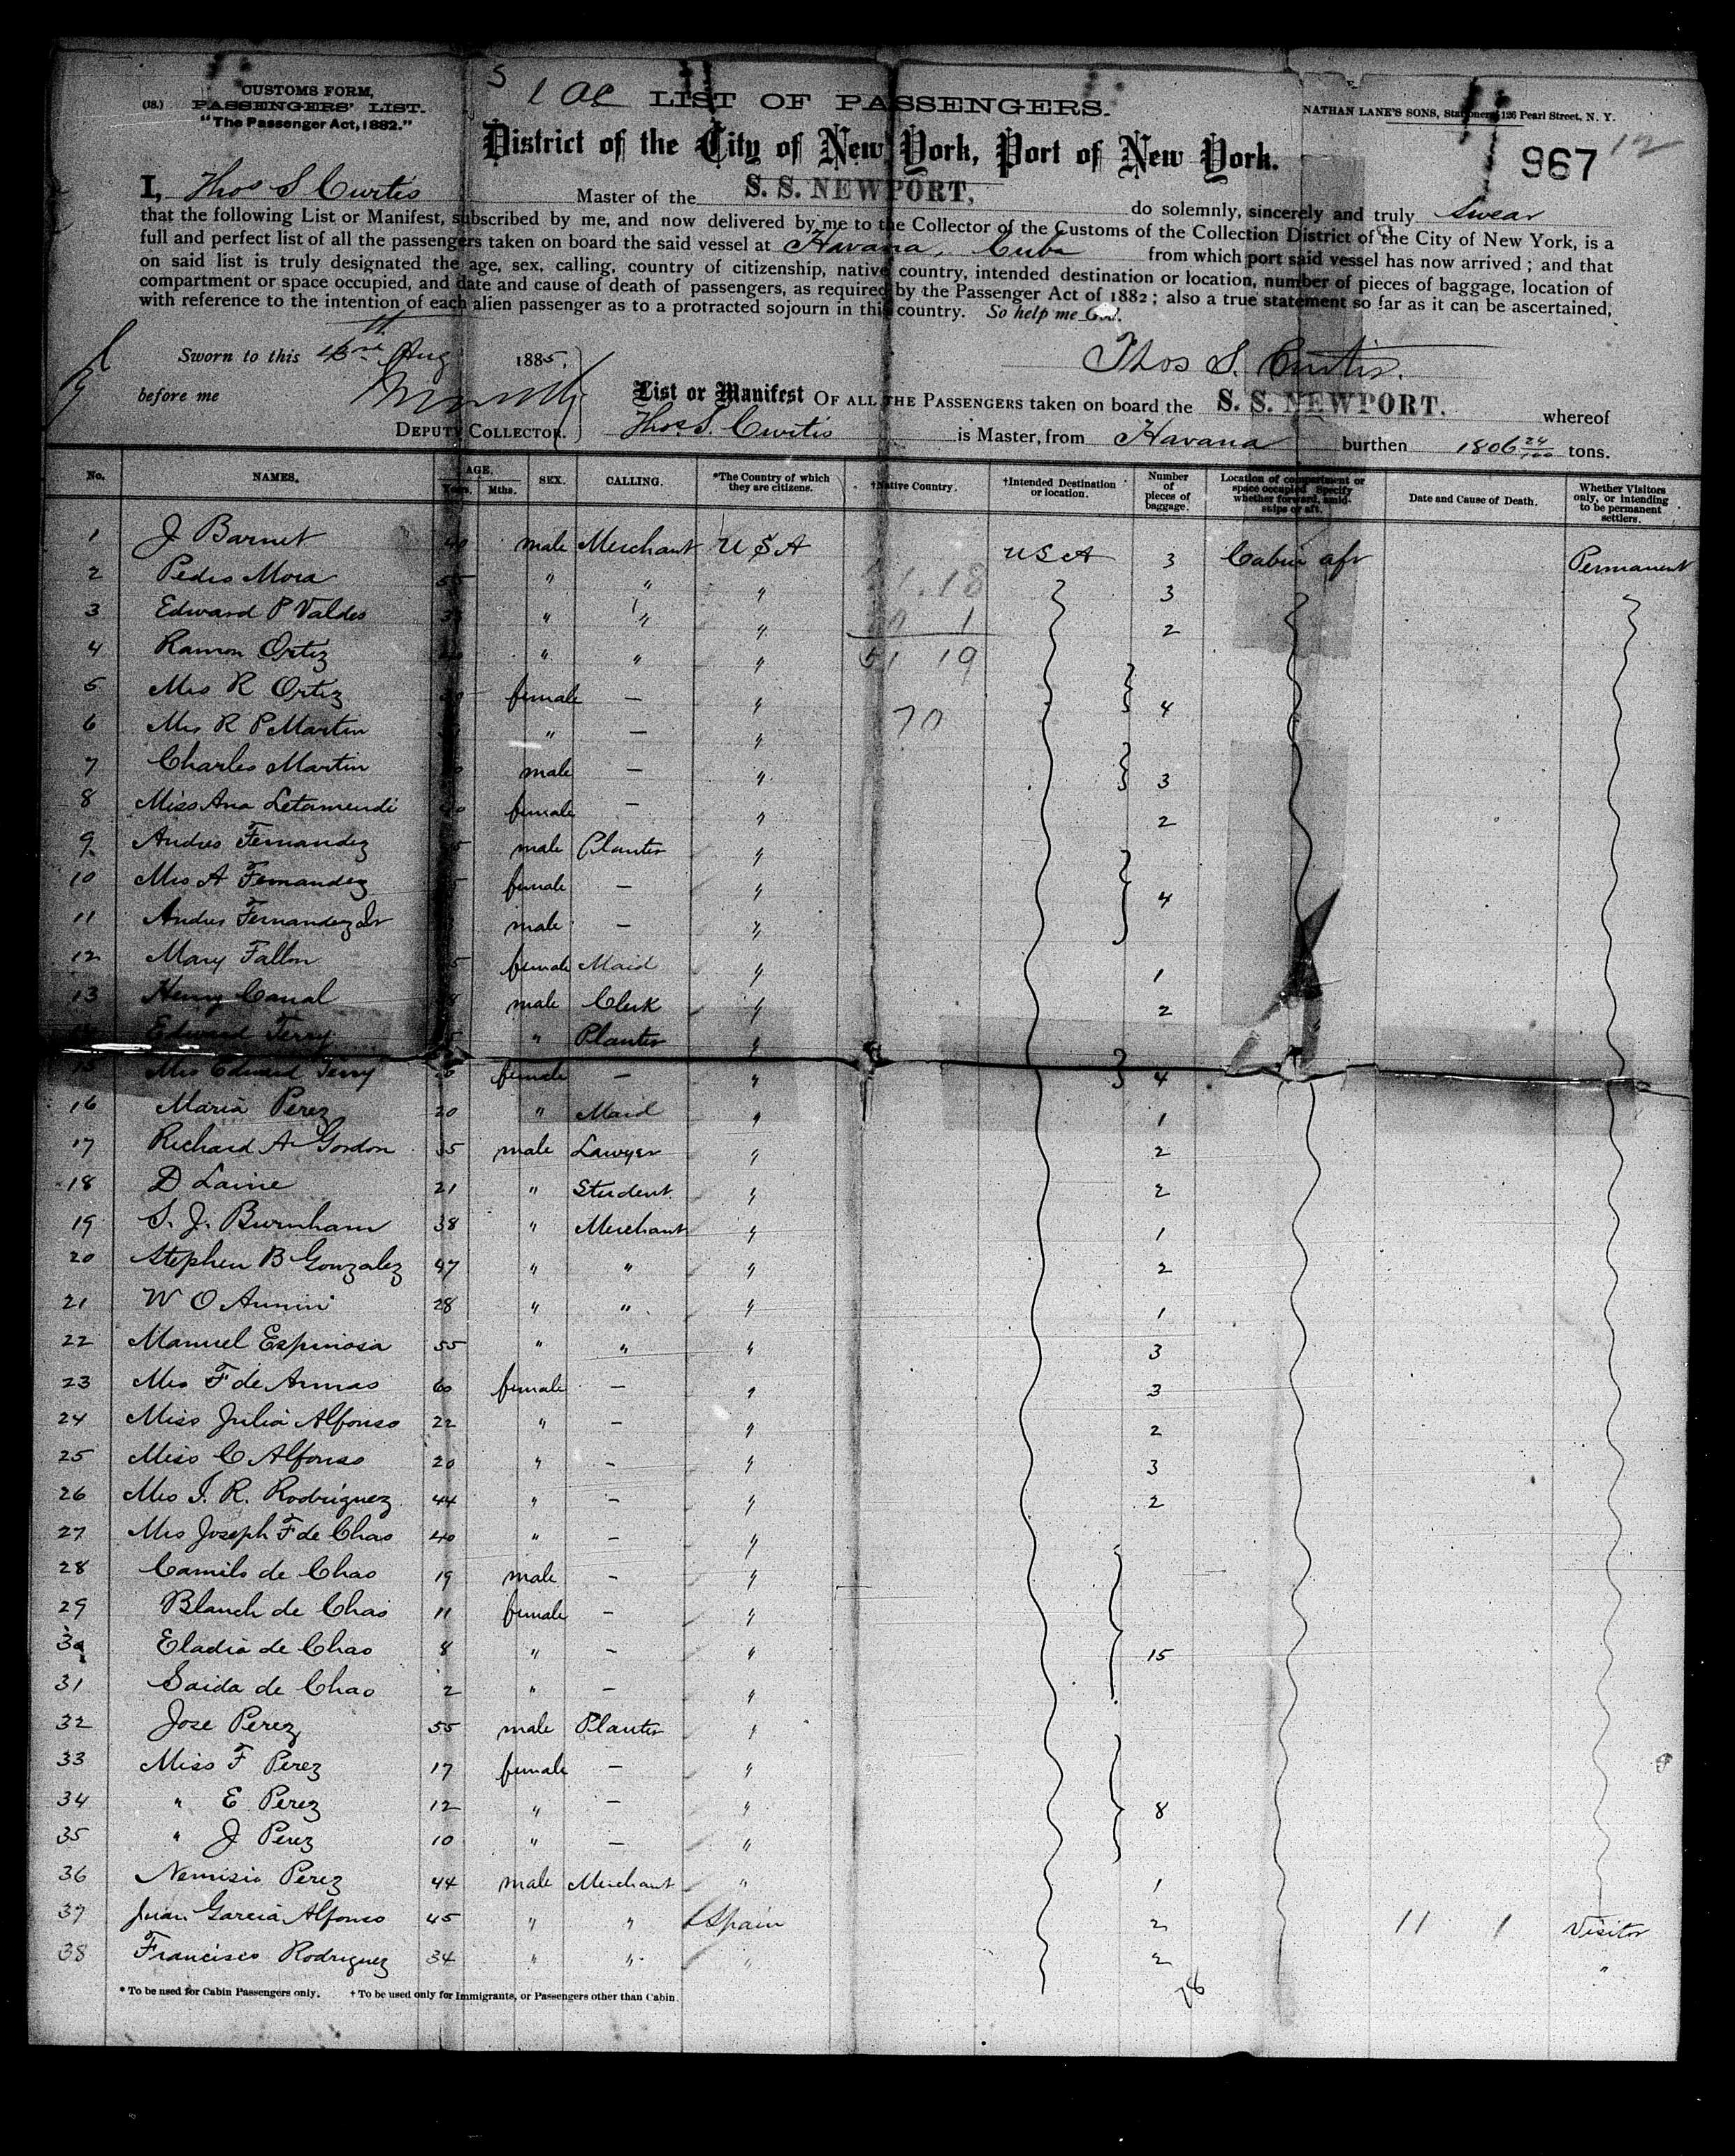 CUSTOMS FORM,
(18.) PASSENGERS' LIST.
"The Passenger Act, 1882."
LIST OF PASSENGERS.
NATHAN LANE'S SONS, Stationers, 126 Pearl Street, N. Y.
District of the City of New York, Port of New York.
967 12
I, Thos S Curtis Master of the S. S. NEWPORT, do solemnly, sincerely and truly swear
that the following List or Manifest, subscribed by me, and now delivered by me to the Collector of the Customs of the Collection District of the City of New York, is a
full and perfect list of all the passengers taken on board the said vessel at Havana, Cuba from which port said vessel has now arrived; and that
on said list is truly designated the age, sex, calling, country of citizenship, native country, intended destination or location, number of pieces of baggage, location of
compartment or space occupied, and date and cause of death of passengers, as required by the Passenger Act of 1882; also a true statement so far as it can be ascertained,
with reference to the intention of each alien passenger as to a protracted sojourn in this country. So help me God.
Sworn to this Aug 1885,
Thos S. Curtis.
before me
DEPUTY COLLECTOR.
List or Manifest OF ALL THE PASSENGERS taken on board the S. S. NEWPORT, whereof
Thos. S. Curtis is Master, from Havana burthen 1806 24/100 tons.
No. NAMES. AGE. Years. Mths. SEX. CALLING. *The Country of which they are citizens. †Native Country. †Intended Destination or location. Number of pieces of baggage. Location of compartment or space occupied. Specify whether forward, amidships or aft. Date and Cause of Death. Whether Visitors only, or intending to be permanent settlers.
1 J Barnet 40 male Merchant U S A U S A 3 Cabin aft Permanent
2 Pedro Mora 55 " " " 3
3 Edward P Valdes " " " 2
4 Ramon Ortiz " " " 51 19
5 Mrs R Ortiz female — " 4
6 Mrs R P Martin " — " 70
7 Charles Martin male — " 3
8 Miss Ana Letamendi female — " 2
9 Andres Fernandez male Planter "
10 Mrs A Fernandez female — " 4
11 Andres Fernandez Jr male — "
12 Mary Fallon female Maid " 1
13 Henry Canal male Clerk " 2
14 Edward Terry " Planter "
15 Mrs Edward Terry female — " 4
16 Maria Perez 20 " Maid " 1
17 Richard A Gordon 35 male Lawyer " 2
18 D Laine 21 " Student " 2
19 S. J. Burnham 38 " Merchant " 1
20 Stephen B Gonzalez 47 " " " 2
21 W O 28 " " " 1
22 Manuel Espinosa 55 " " " 3
23 Mrs F de Armas 60 female — " 3
24 Miss Julia Alfonso 22 " — " 2
25 Miss C Alfonso 20 " — " 3
26 Mrs I. R. Rodriguez 44 " — " 2
27 Mrs Joseph F de Chao 40 " — "
28 Camilo de Chao 19 male — "
29 Blanch de Chao 11 female — "
30 Eladia de Chao 8 " — " 15
31 Saida de Chao 2 " — "
32 Jose Perez 55 male Planter "
33 Miss F Perez 17 female — "
34 " E Perez 12 " — " 8
35 " J Perez 10 " — "
36 Nemisio Perez 44 male Merchant " 1
37 Juan Garcia Alfonso 45 " " Spain 2 11 1 Visitor
38 Francisco Rodriguez 34 " " " 2 "
78
* To be used for Cabin Passengers only. † To be used only for Immigrants, or Passengers other than Cabin.